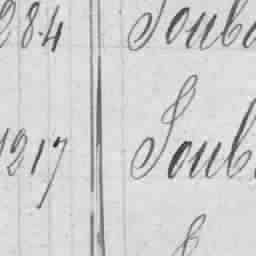 284 Soub
1217 Soub